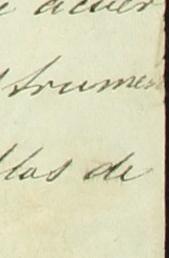 e acuer
strumen
llas de